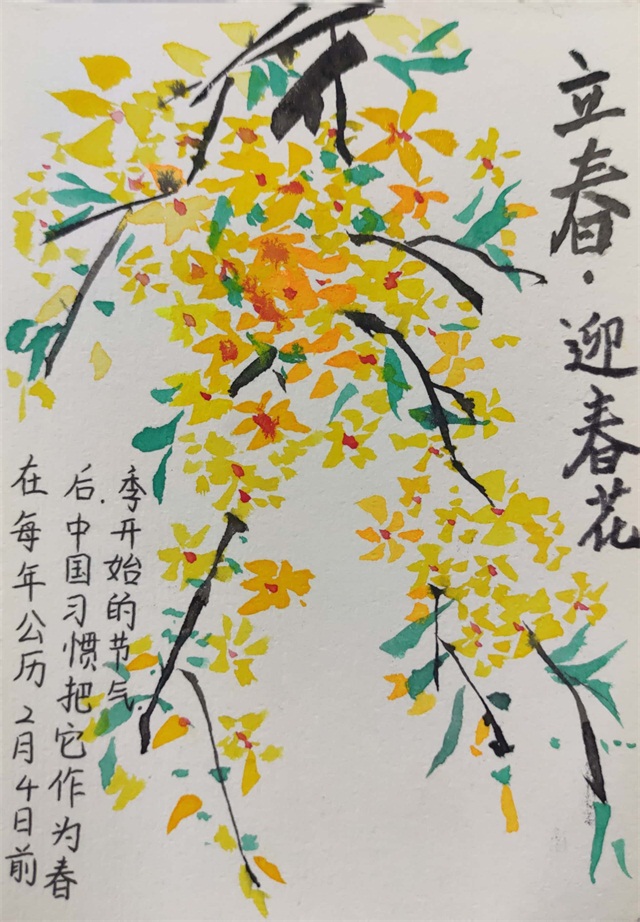 立春·迎春花
在每年公历2月4日前
后.中国习惯把它作为春
季开始的节气.